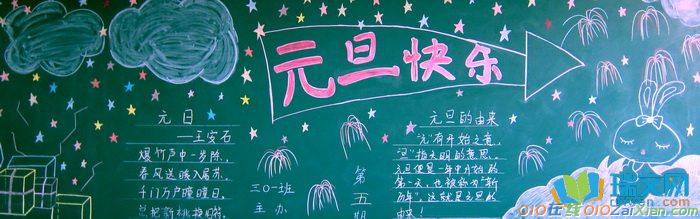 元旦快乐
元日
——王安石
爆竹声中一岁除，
春风送暖入屠苏。
千门万户曈曈日，
总把新桃换旧符。
三〇一班
主办
第五期
元旦的由来
“元”有开始之意，
“旦”指天明的意思。
元旦便是一年中开始的
第一天，也被称为“新
历年”。这就是元旦的
由来！
瑞文网